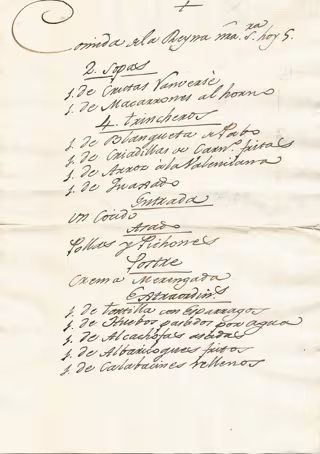 Comida de la Reyna ñra. Sra. hoy 5.
2. Sopas
1. de Crutas
1. de Macarrones al horno
4. trincheros
1. de Blanqueta de Pabo
1. de Criadillas de Carno. fritas
1. de Arroz a la Valenciana
1. de Guisado
Entrada
Un Cocido
Asado
Pollas y Pichones
Postre
Crema Merengada
Extraordins.
1. de tortilla con Esparragos
1. de Huebos pasados por agua
1. de Alcachofas asadas
1. de Albaricoques fritos
1. de Calabacines rellenos